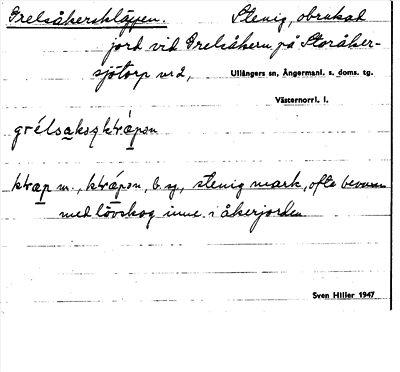 Grelsåkersklappen. Stenig, obrukad
jord vid Grelsåkern på Storåker-
sjötorp nr 2, Ullångers sn, Ångermanl. s. doms. tg.
Västernorrl. l.
m., b. sg., stenig mark, ofta bevuxen
med lövskog inne i åkerjorden
Sven Hiller 1947